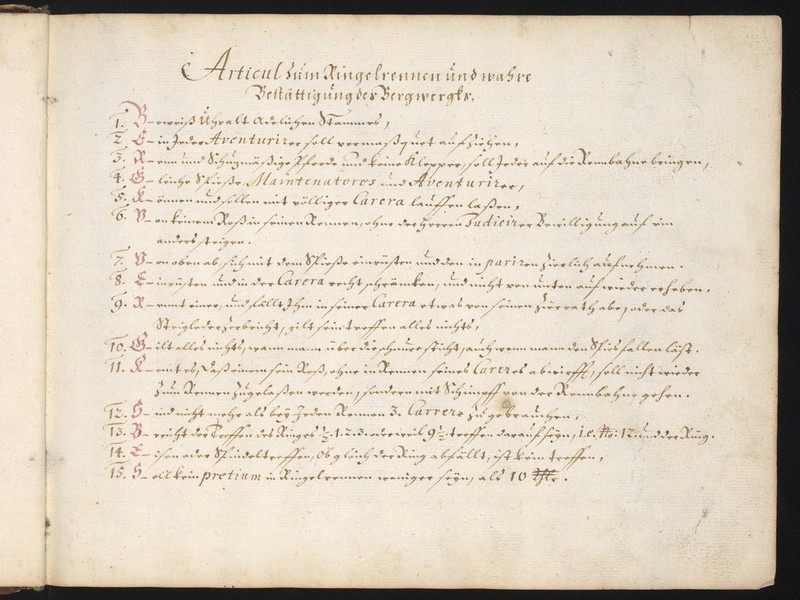 Articul zum Ringelrennen und wahre
Bestättigung des Bergwergks.
1. Beweiß Uhralt Adelichen Stammes,
2. Ein Jeder Aventurirer soll vermasquet aufziehen,
3. Renn und Schußmäßige Pferde und keine Klepper, soll Jeder auf die Rennbahne bringen,
4. Gleiche Spieße, Maintenatores und Aventurirer,
5. Können und sollen mit völliger Carera lauffen laßen,
6. Von keinem Roß in seinen Rennen, ohne der Herren Judicirer Bewilligung auf ein
anders steigen.
7. Von oben ab, sich mit dem Spieße einrüsten und den in pariren zierlich aufnehmen.
8. Einrüsten und in der Carera recht schrämken, und nicht von unten auf wieder erheben.
9. Rennt einer, und fällt Ihm in seiner Carera etwas von seinen Zierrath abe, oder das
Steigleder zerbricht, gilt sein treffen alles nichts,
10. Gilt alles nichts, wann mann über die schnure sticht, auch wenn mann den Spies fallen läst.
11. Kömt es, daß einen sein Roß, ohne in Rennen seines Careres abwirfft, soll nicht wieder
zum Rennen zugelaßen werden, sondern mit Schimpff von der Rennbahne gehen.
12. Sind nicht mehr als bey Jeden Rennen 3. Carrere zu gebrauchen,
13. Bricht der Treffen des Ringes ½. 1. 2. 3. oder weil 9½ treffen darauf seyn, i.e. 12 und der Ring.
14. Eisen oder Spindel treffen, Ob gleich der Ring abfällt, ist kein treffen,
15. Soll kein pretium in Ringelrennen weniger seyn, als 10 Thlr.